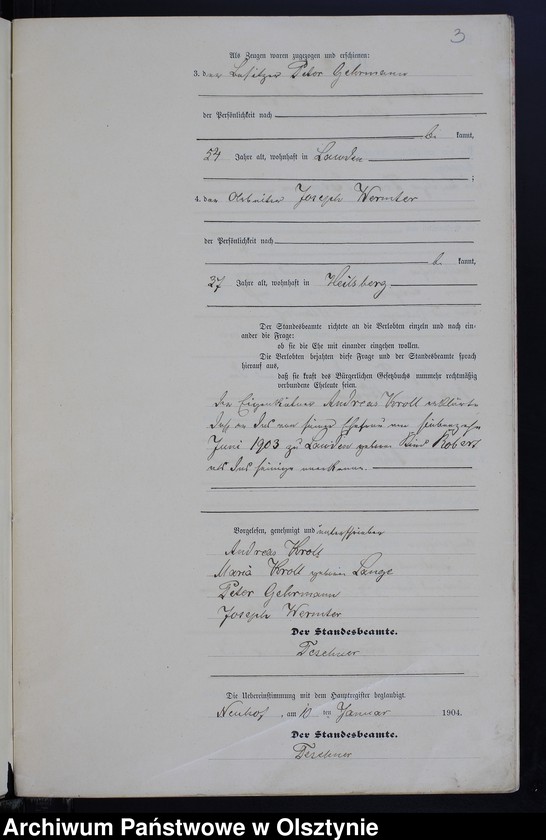 3
Als Zeugen waren zugezogen und erschienen:
3. der Besitzer Peter Gehrmann
der Persönlichkeit nach
be kannt,
54 Jahre alt, wohnhaft in Lawden
;
4. der Arbeiter Joseph Wermter
der Persönlichkeit nach
be kannt,
37 Jahre alt, wohnhaft in Heilsberg
Der Standesbeamte richtete an die Verlobten einzeln und nach ein-
ander die Frage:
ob sie die Ehe mit einander eingehen wollen.
Die Verlobten bejahten diese Frage und der Standesbeamte sprach
hierauf aus,
daß sie kraft des Bürgerlichen Gesetzbuchs nunmehr rechtmäßig
verbundene Eheleute seien.
Der Eigenkätner Andreas Kroll erklärte
daß er das von seiner Ehefrau am siebenzehn
Juni 1903 zu Lawden geborene Kind Robert
als das seinige anerkenne.
Vorgelesen, genehmigt und unterschrieben
Andreas Kroll
Maria Kroll geborene Lange
Peter Gehrmann
Joseph Wermter
Der Standesbeamte.
Teschner
Die Uebereinstimmung mit dem Hauptregister beglaubigt.
Neuhof, am 10 ten Januar 1904.
Der Standesbeamte.
Teschner
Archiwum Państwowe w Olsztynie